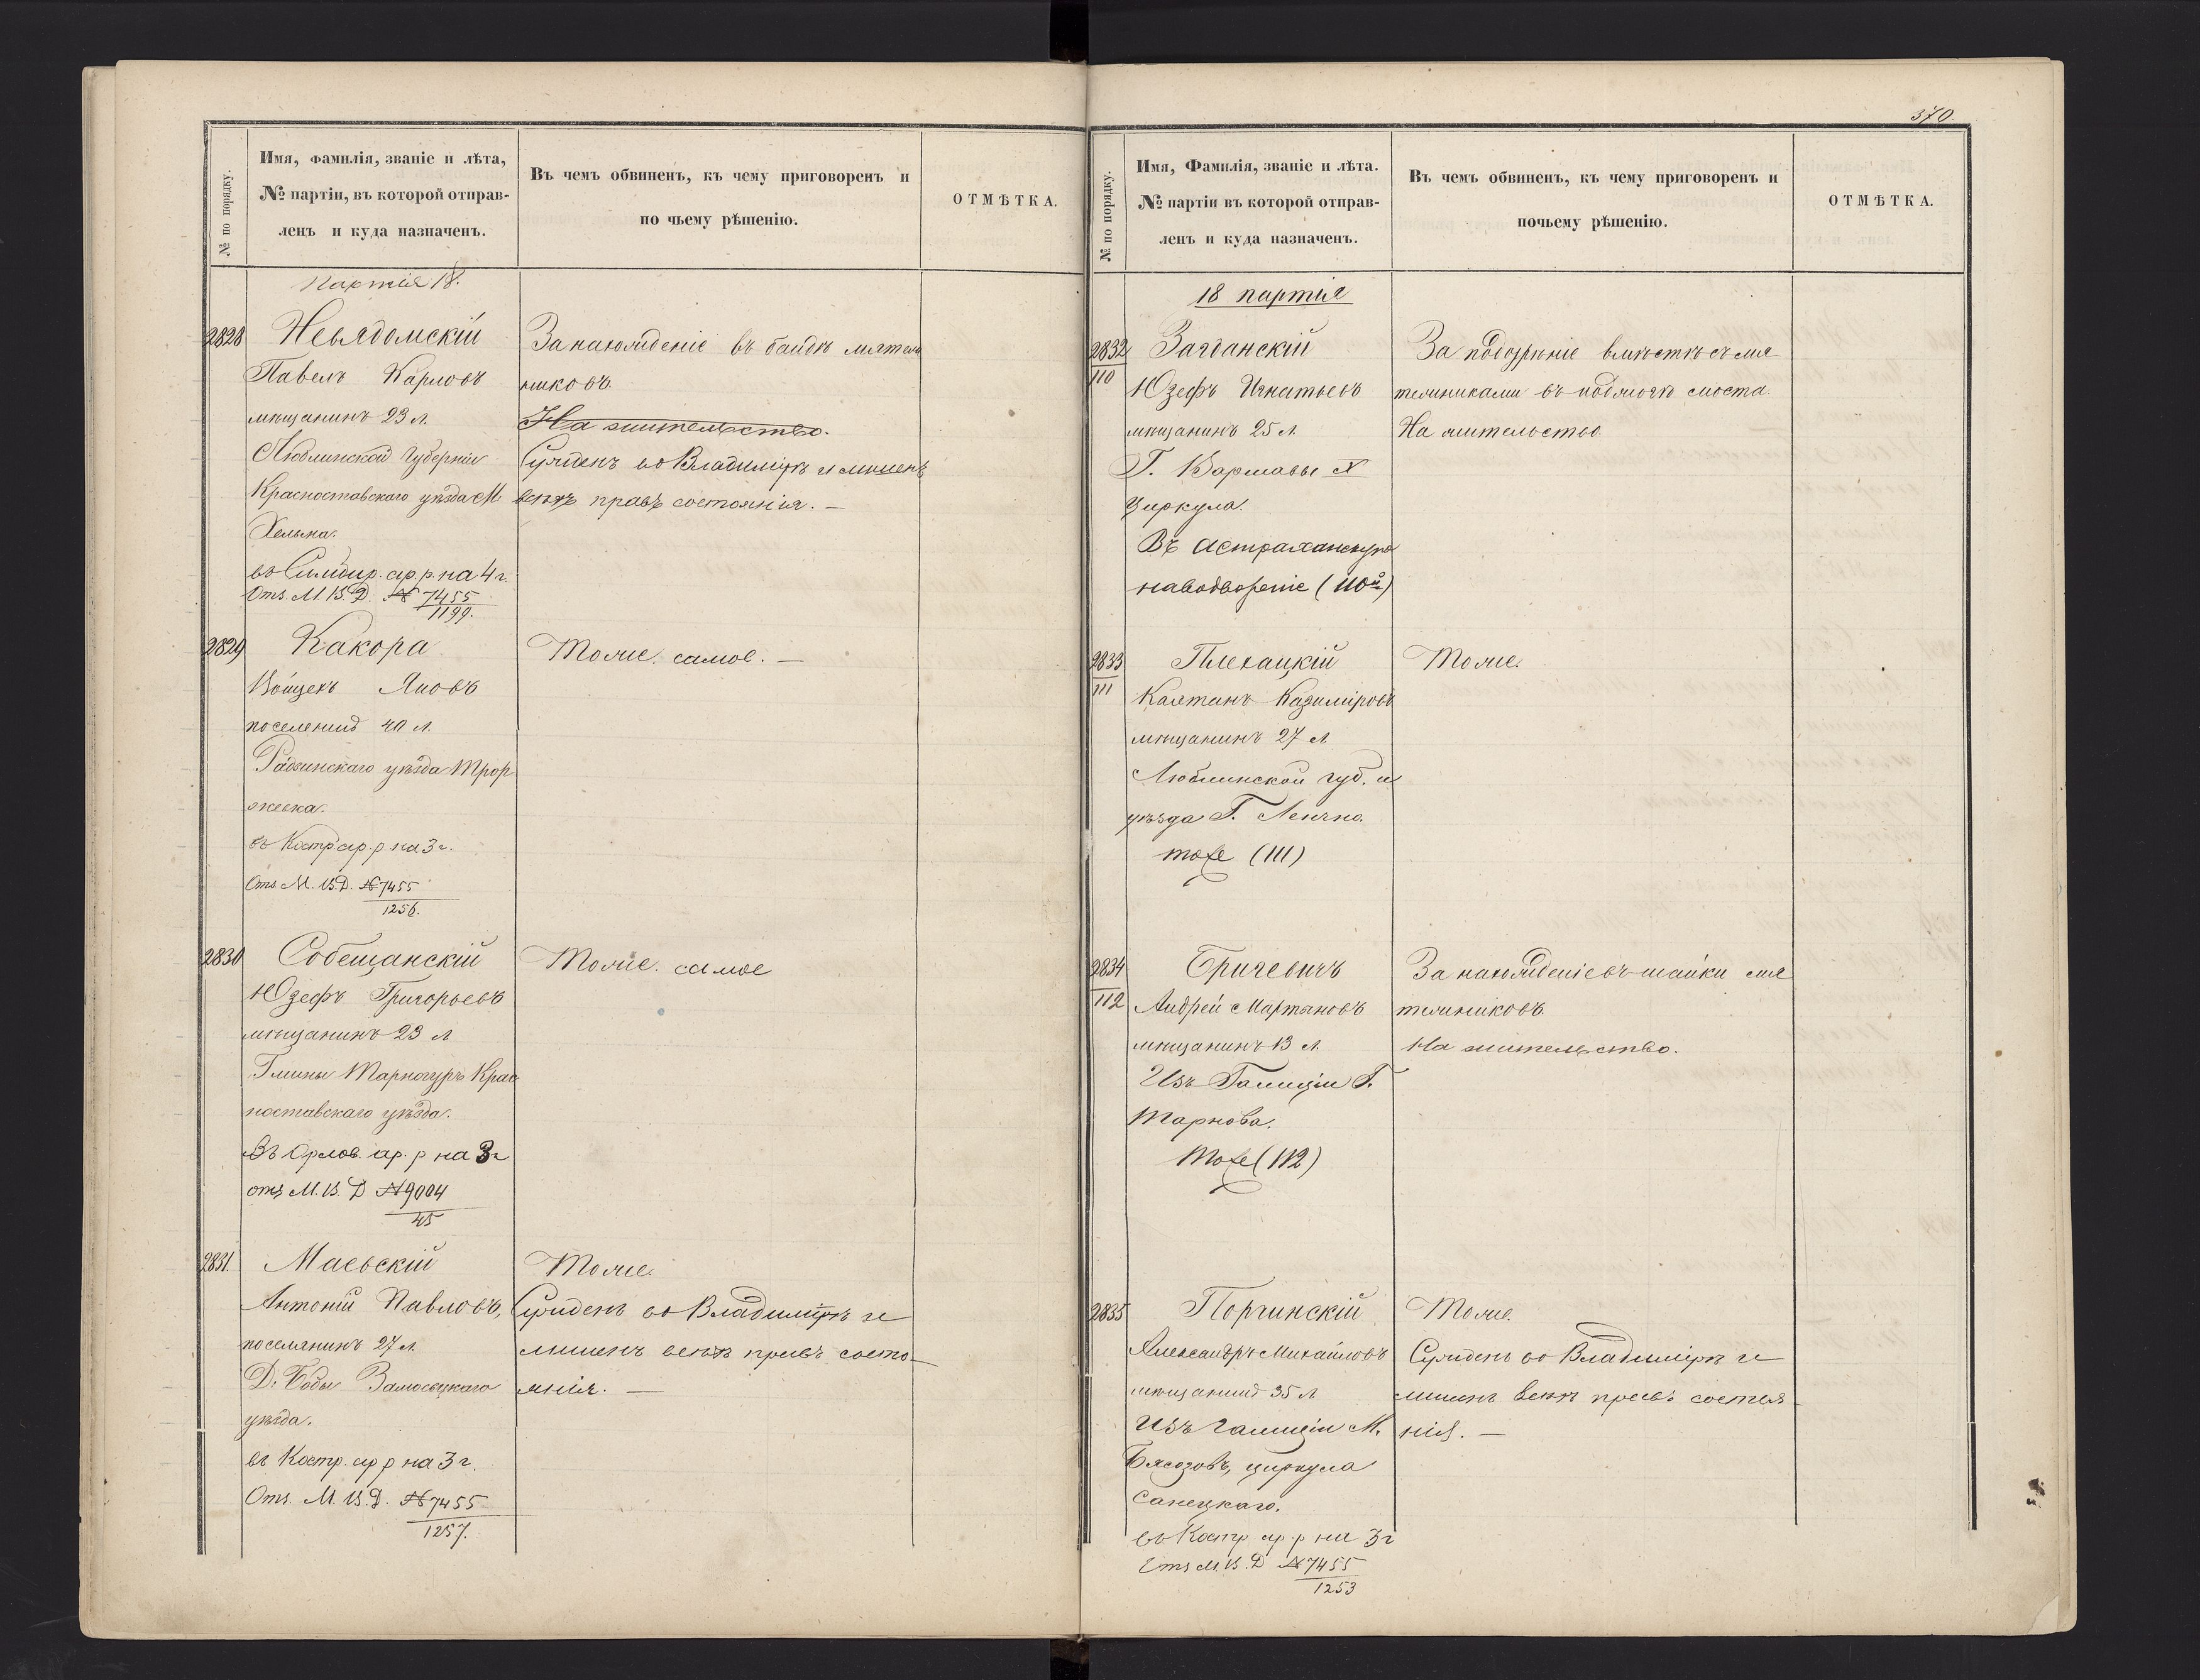 370.
№ по порядку.
Имя, фамилія, званіе и лѣта,
№ партіи, въ которой отправ-
ленъ и куда назначенъ.
Въ чемъ обвиненъ, къ чему приговоренъ и
по чьему рѣшенію.
ОТМѢТКА.
Партія 18.
2828
Невядомскій
Павелъ Карловъ
мѣщанинъ 23 л.
Люблинской Губерніи
Красноставскаго уѣзда М.
Хельма.
въ Симбир. ар. р. на 4 г.
Отз. М. В. Д. № 7455
1199.
За нахожденіе въ бандѣ мятеж
никовъ.
На жительство.
Сужденъ во Владимірѣ и лишенъ
всѣхъ правъ состоянія. —
2829
Какора
Войцехъ Яновъ
поселенинъ 40 л.
Радзинскаго уѣзда
жевка.
въ Костр. ар. р на 3 г.
Отз М. В. Д. № 7455
1256.
Тоже самое. —
2830
Собещанскій
Юзефъ Григорьевъ
мѣщанинъ 23 л
Гмины Тарногуръ Крас
ноставскаго уѣзда.
Въ Орлов. ар. р на 3 г
отз М. В. Д № 9004
45
Тоже самое
2831.
Маевскій
Антоній Павловъ,
поселянинъ 27 л
Д. Воды Замосцкаго
уѣзда.
въ Костр. ар р на 3 г.
Отз. М. В. Д. № 7455
1257.
Тоже.
Сужденъ во Владимірѣ и
лишенъ всѣхъ правъ состо-
янія. —
№ по порядку.
Имя, Фамилія, званіе и лѣта.
№ партіи въ которой отправ-
ленъ и куда назначенъ.
Въ чемъ обвиненъ, къ чему приговоренъ и
почьему рѣшенію.
ОТМѢТКА.
18 партія
2832
110
Загданскій
Юзефъ Игнатьевъ
мѣщанинъ 25 л.
Г. Варшавы X
Циркула.
Въ Астраханскую
наводвореніе (110й)
За подозрѣніе вмѣстѣ съ мя
тежниками въ поджогѣ моста.
На жительство.
2833
111
Плекацкій
Каэтанъ Казиміровъ
мѣщанинъ 27 л
Люблинской губ. и
уѣзда Г. Ленчно.
тоже (111)
Тоже.
2834
112
Бричевичъ
Андрей Мартыновъ
мѣщанинъ 13 л.
Изъ Галиціи Г.
Тарнова.
Тоже (112)
За нахожденіе въ шайки мя
тежниковъ.
На жительство.
2835
Порчинскій
Александръ Михайловъ
мѣщанинъ 35 л
Изъ Галиціи М.
циркула
Санецкаго.
въ Костр ар. р на 3 г
Отз М. В. Д № 7455
1253
Тоже.
Сужденъ во Владимірѣ и
лишенъ всѣхъ правъ состоя-
нія. —